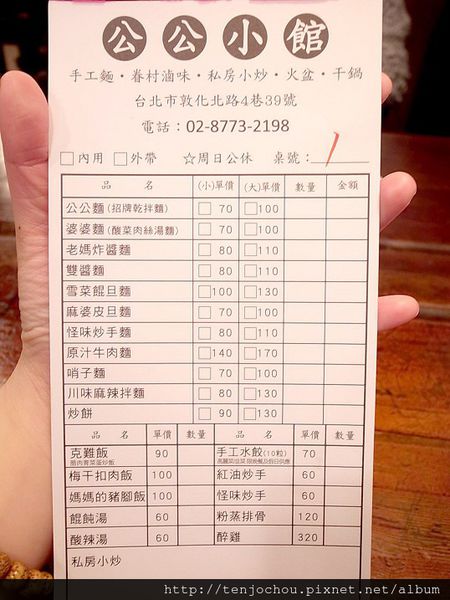 公公小館
手工麵・眷村滷味・私房小炒・火盆・干鍋
台北市敦化北路4巷39號
電話：02-8773-2198
□內用 □外帶 ☆周日公休 桌號：1
品 名 (小)單價 (大)單價 數量 金額
公公麵(招牌乾拌麵) □ 70 □100
婆婆麵(酸菜肉絲湯麵) □ 70 □100
老媽炸醬麵 □ 80 □110
雙醬麵 □ 80 □110
雪菜餛旦麵 □100 □130
麻婆皮旦麵 □ 70 □100
怪味炒手麵 □ 80 □110
原汁牛肉麵 □140 □170
哨子麵 □ 70 □100
川味麻辣拌麵 □ 80 □130
炒餅 □ 90 □130
品 名 單價 數量 品 名 單價 數量
克難飯 90 手工水餃(10粒) 70
臘肉青菜蛋炒飯
梅干扣肉飯 100 紅油炒手 60
媽媽的豬腳飯 100 怪味炒手 60
餛飩湯 60 粉蒸排骨 120
酸辣湯 60 醉雞 320
私房小炒
http://tenjochou.pixnet.net/album